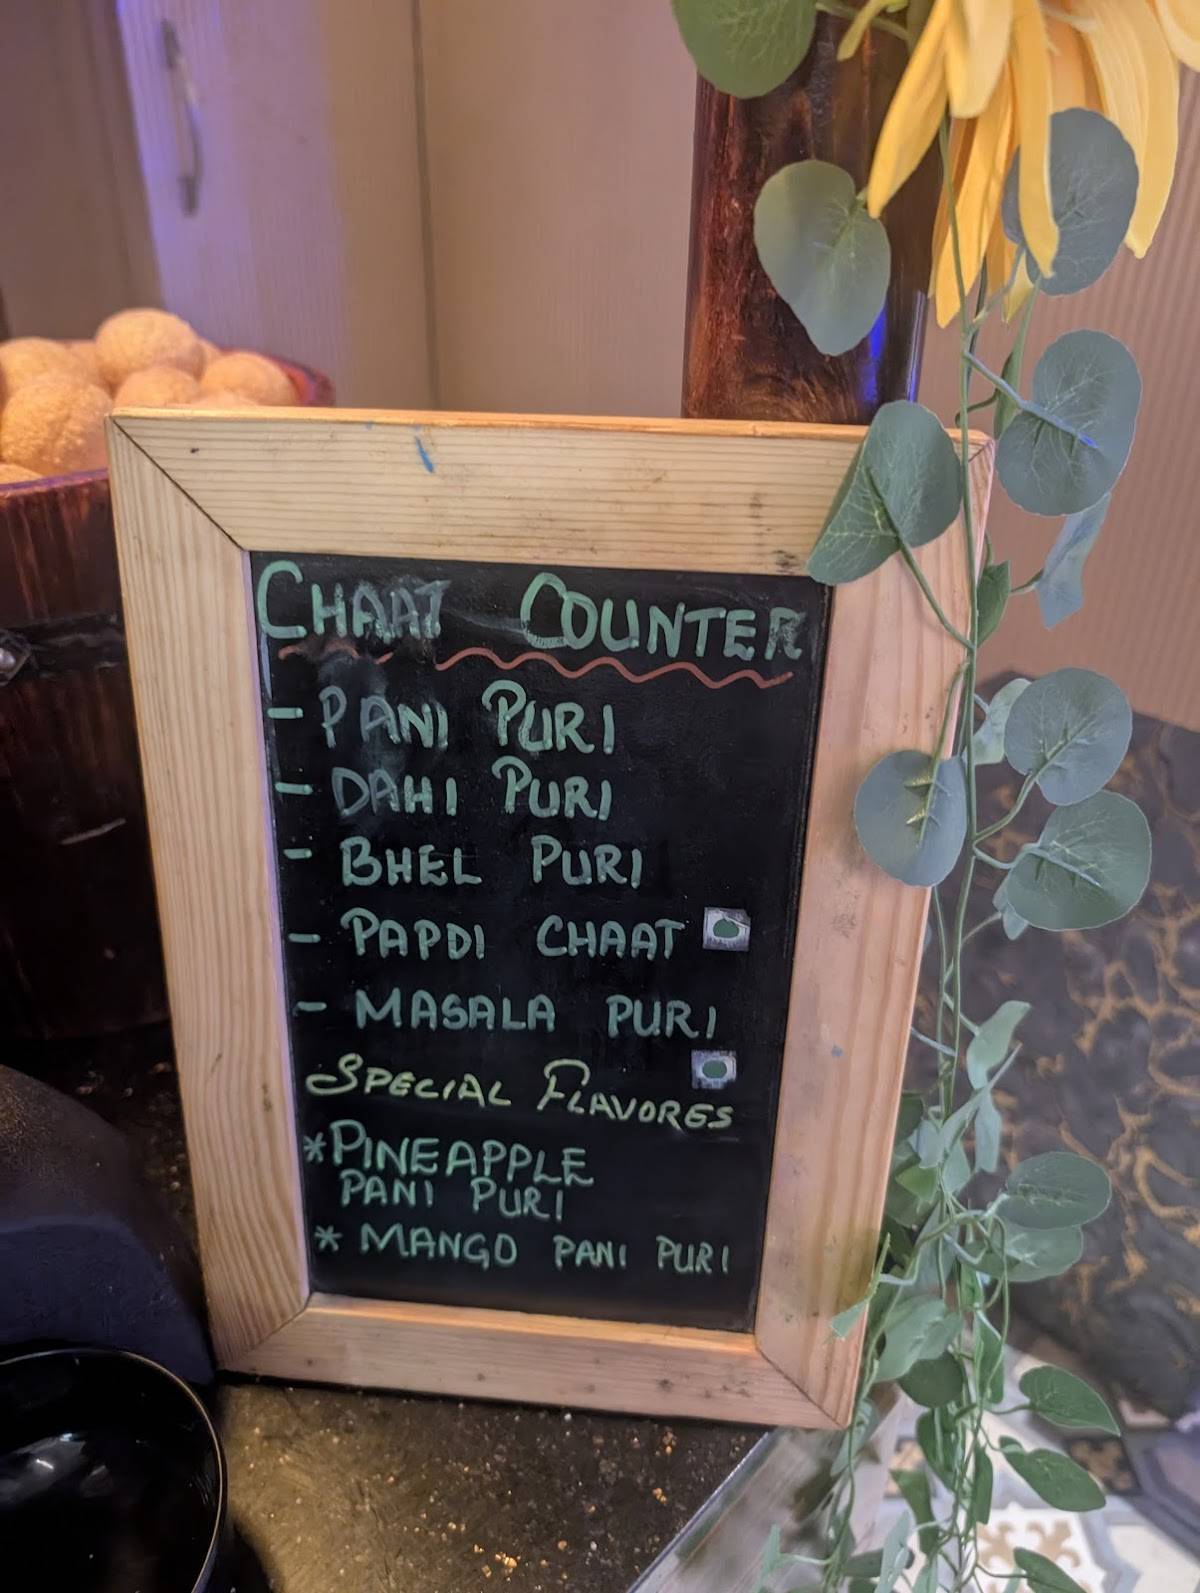 CHAAT COUNTER
- PANI PURI
- DAHI PURI
- BHEL PURI
- PAPDI CHAAT
- MASALA PURI
SPECIAL FLAVORES
* PINEAPPLE
PANI PURI
* MANGO PANI PURI